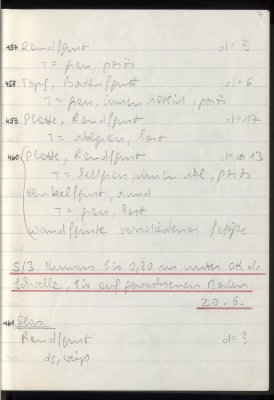 7
457 Randfgmt d = ?
T = grau, porös
458 Topf, Bodenfgmt d = 6
T = grau, innen rötlich, porös
459 Platte, Randfgmt d = 17
T = hart
460 Platte, Randfgmt d = ca 13
T = hellgrau, innen porös
Henkelfgmt, rund
T = grau, hart
Wandfgmte verschiedener Gefäße
S/3 Humus bis 0,20 m unter OK der
Schwelle, bis auf gewachsenen Boden
20.6.
461 Glas
Randfgmt d = ?
ds, weiß